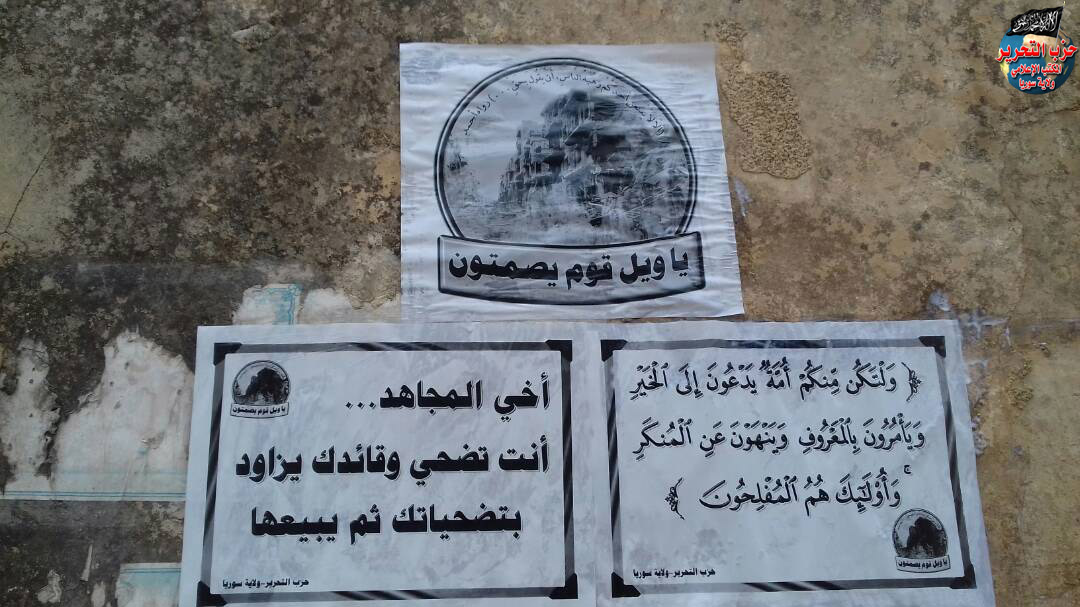 حزب التحرير
المكتب الإعلامي
ولاية سوريا
يا ويل قوم يصمتون
أخي المجاهد...
أنت تضحي وقائدك يزاود
بتضحياتك ثم يبيعها
حزب التحرير-ولاية سوريا
يا ويل قوم يصمتون
﴿ وَلْتَكُن مِّنكُمْ أُمَّةٌ يَدْعُونَ إِلَى ٱلْخَيْرِ
وَيَأْمُرُونَ بِٱلْمَعْرُوفِ وَيَنْهَوْنَ عَنِ ٱلْمُنكَرِ
ۚ وَأُو۟لَـٰٓئِكَ هُمُ ٱلْمُفْلِحُونَ ﴾
يا ويل قوم يصمتون
حزب التحرير-ولاية سوريا